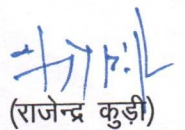 (राजेन्द्र कुड़ी)